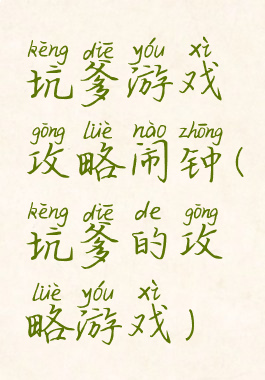 kēng diē yóu xì
坑爹游戏
gōng lüè nào zhōng
攻略闹钟(
kēng diē de gōng
坑爹的攻
lüè yóu xì
略游戏)